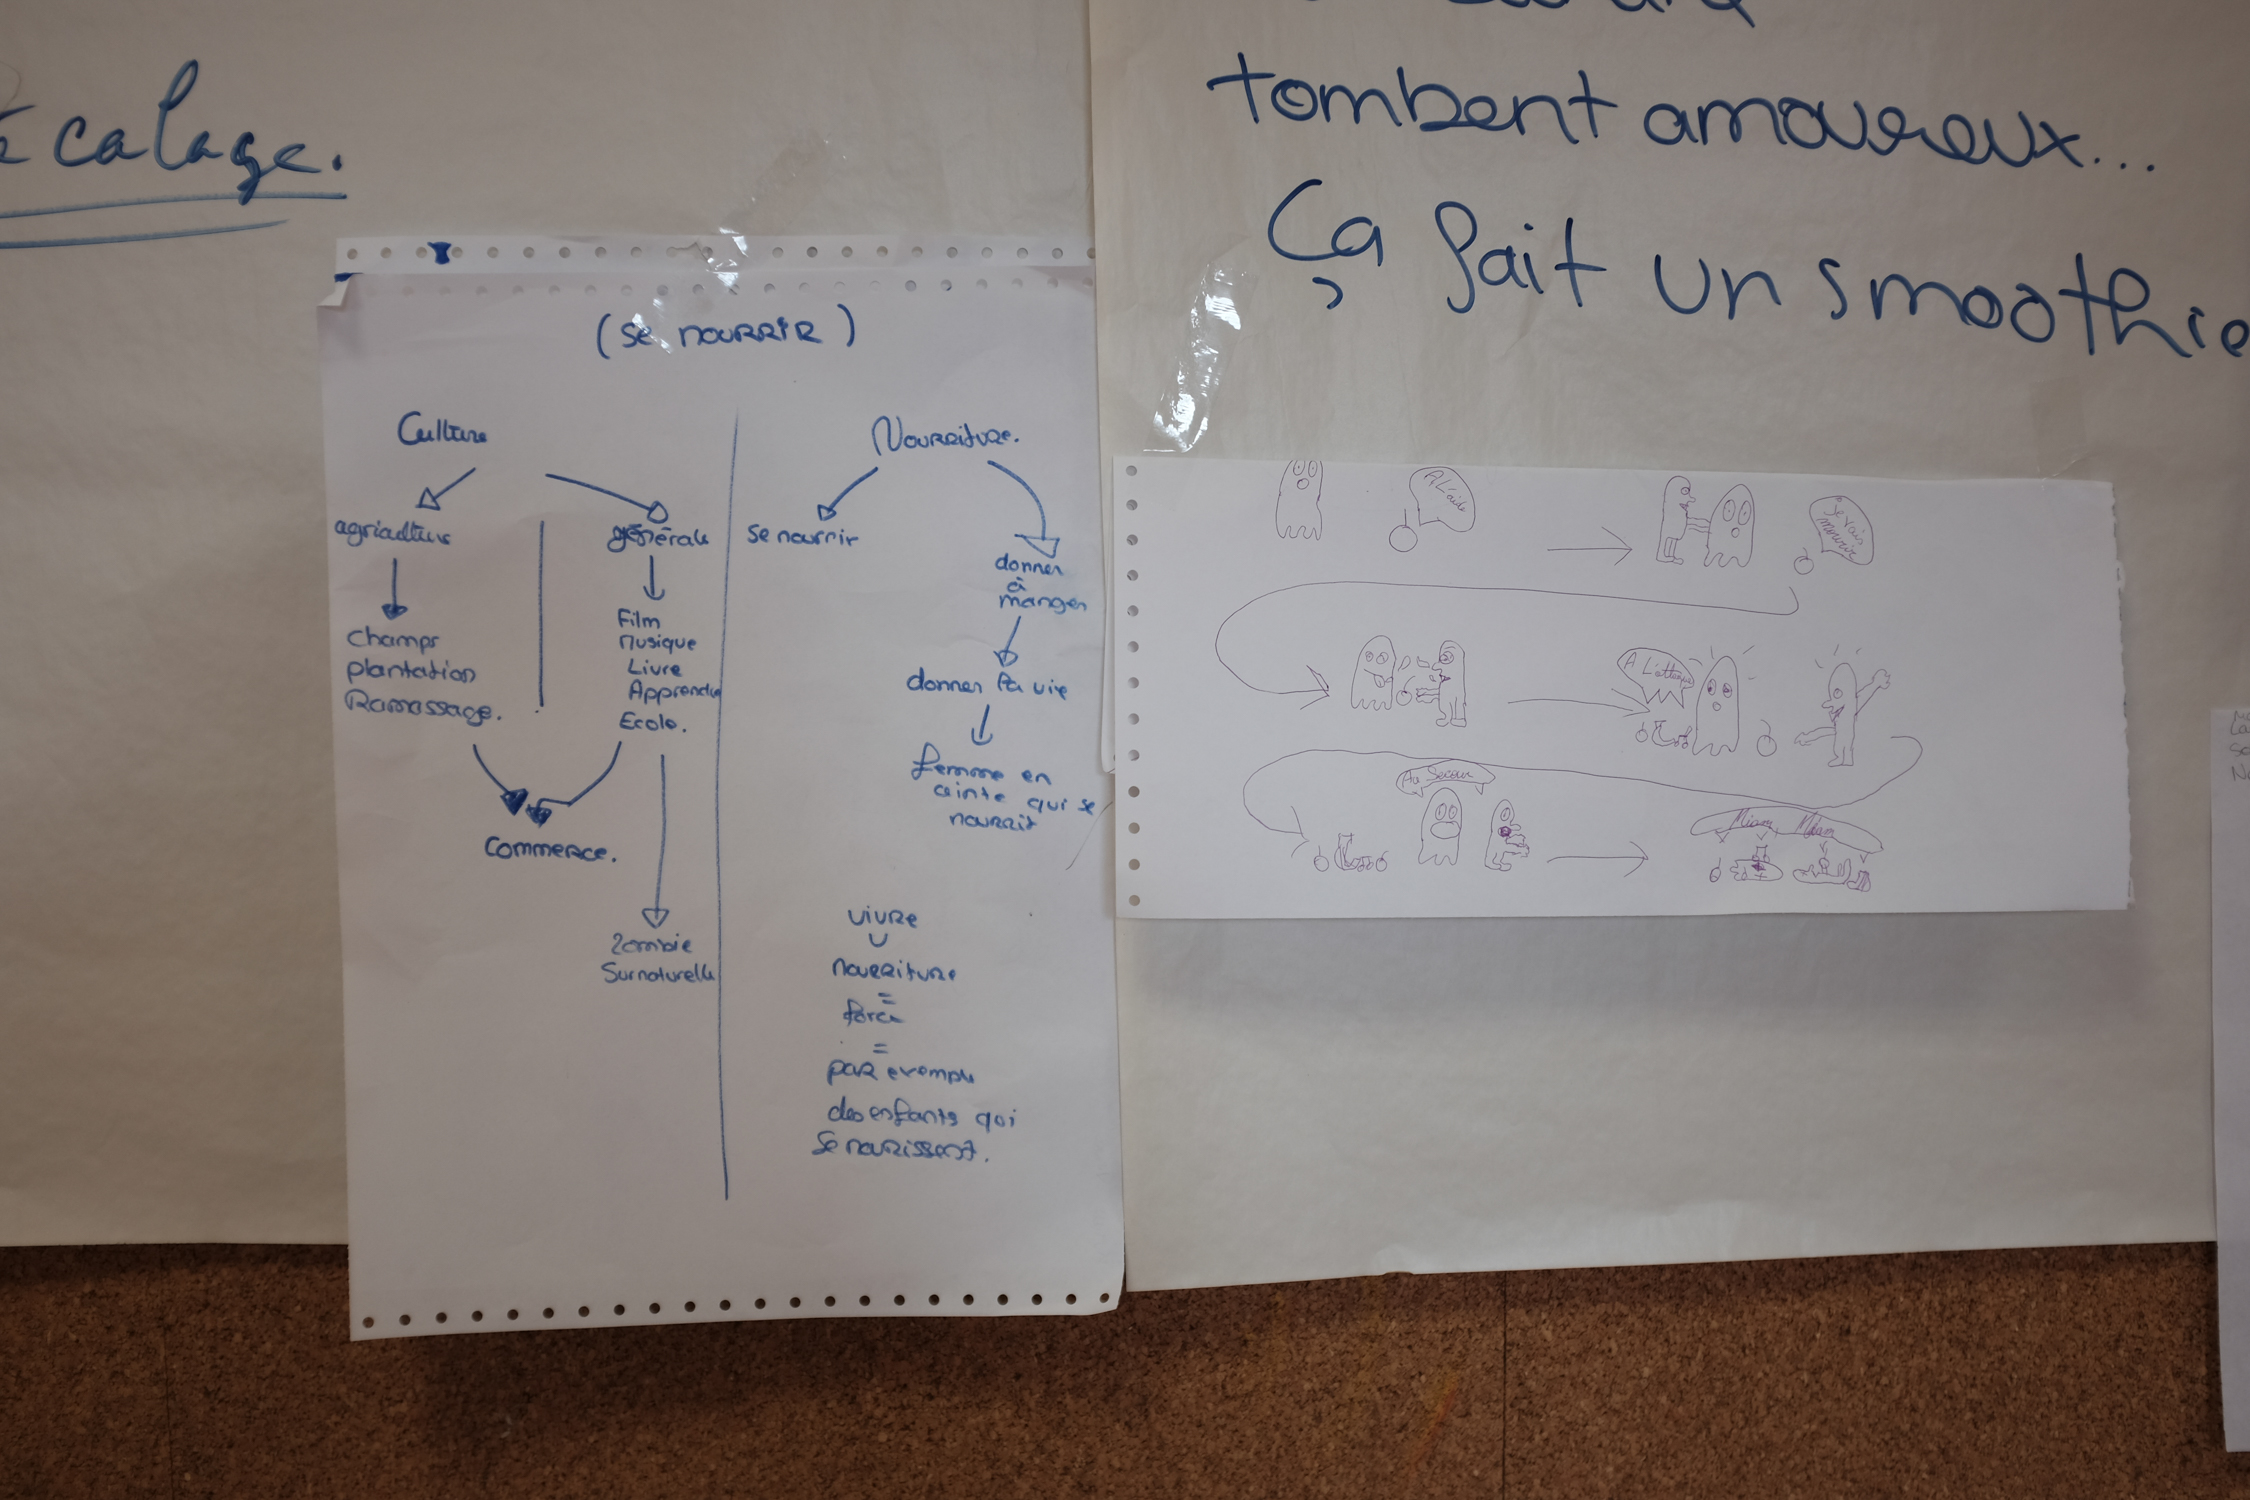 écalage.
tombent amoureux...
Ça fait un smoothie
(se nourrir)
Culture
agriculture
générale
Champs
plantation
Ramassage.
Film
Musique
Livre
Apprendre
Ecole.
Commerce.
Zombie
Surnaturelle
Nourriture.
se nourrir
donner
à
manger
donner la vie
femme en
ceinte qui se
nourrit
vivre
nourriture
=
force
=
par exemple
des enfants qui
se nourissent.
A L'aide
Je vais
mourir
A L'attaque
Au Secour
Miam Miam